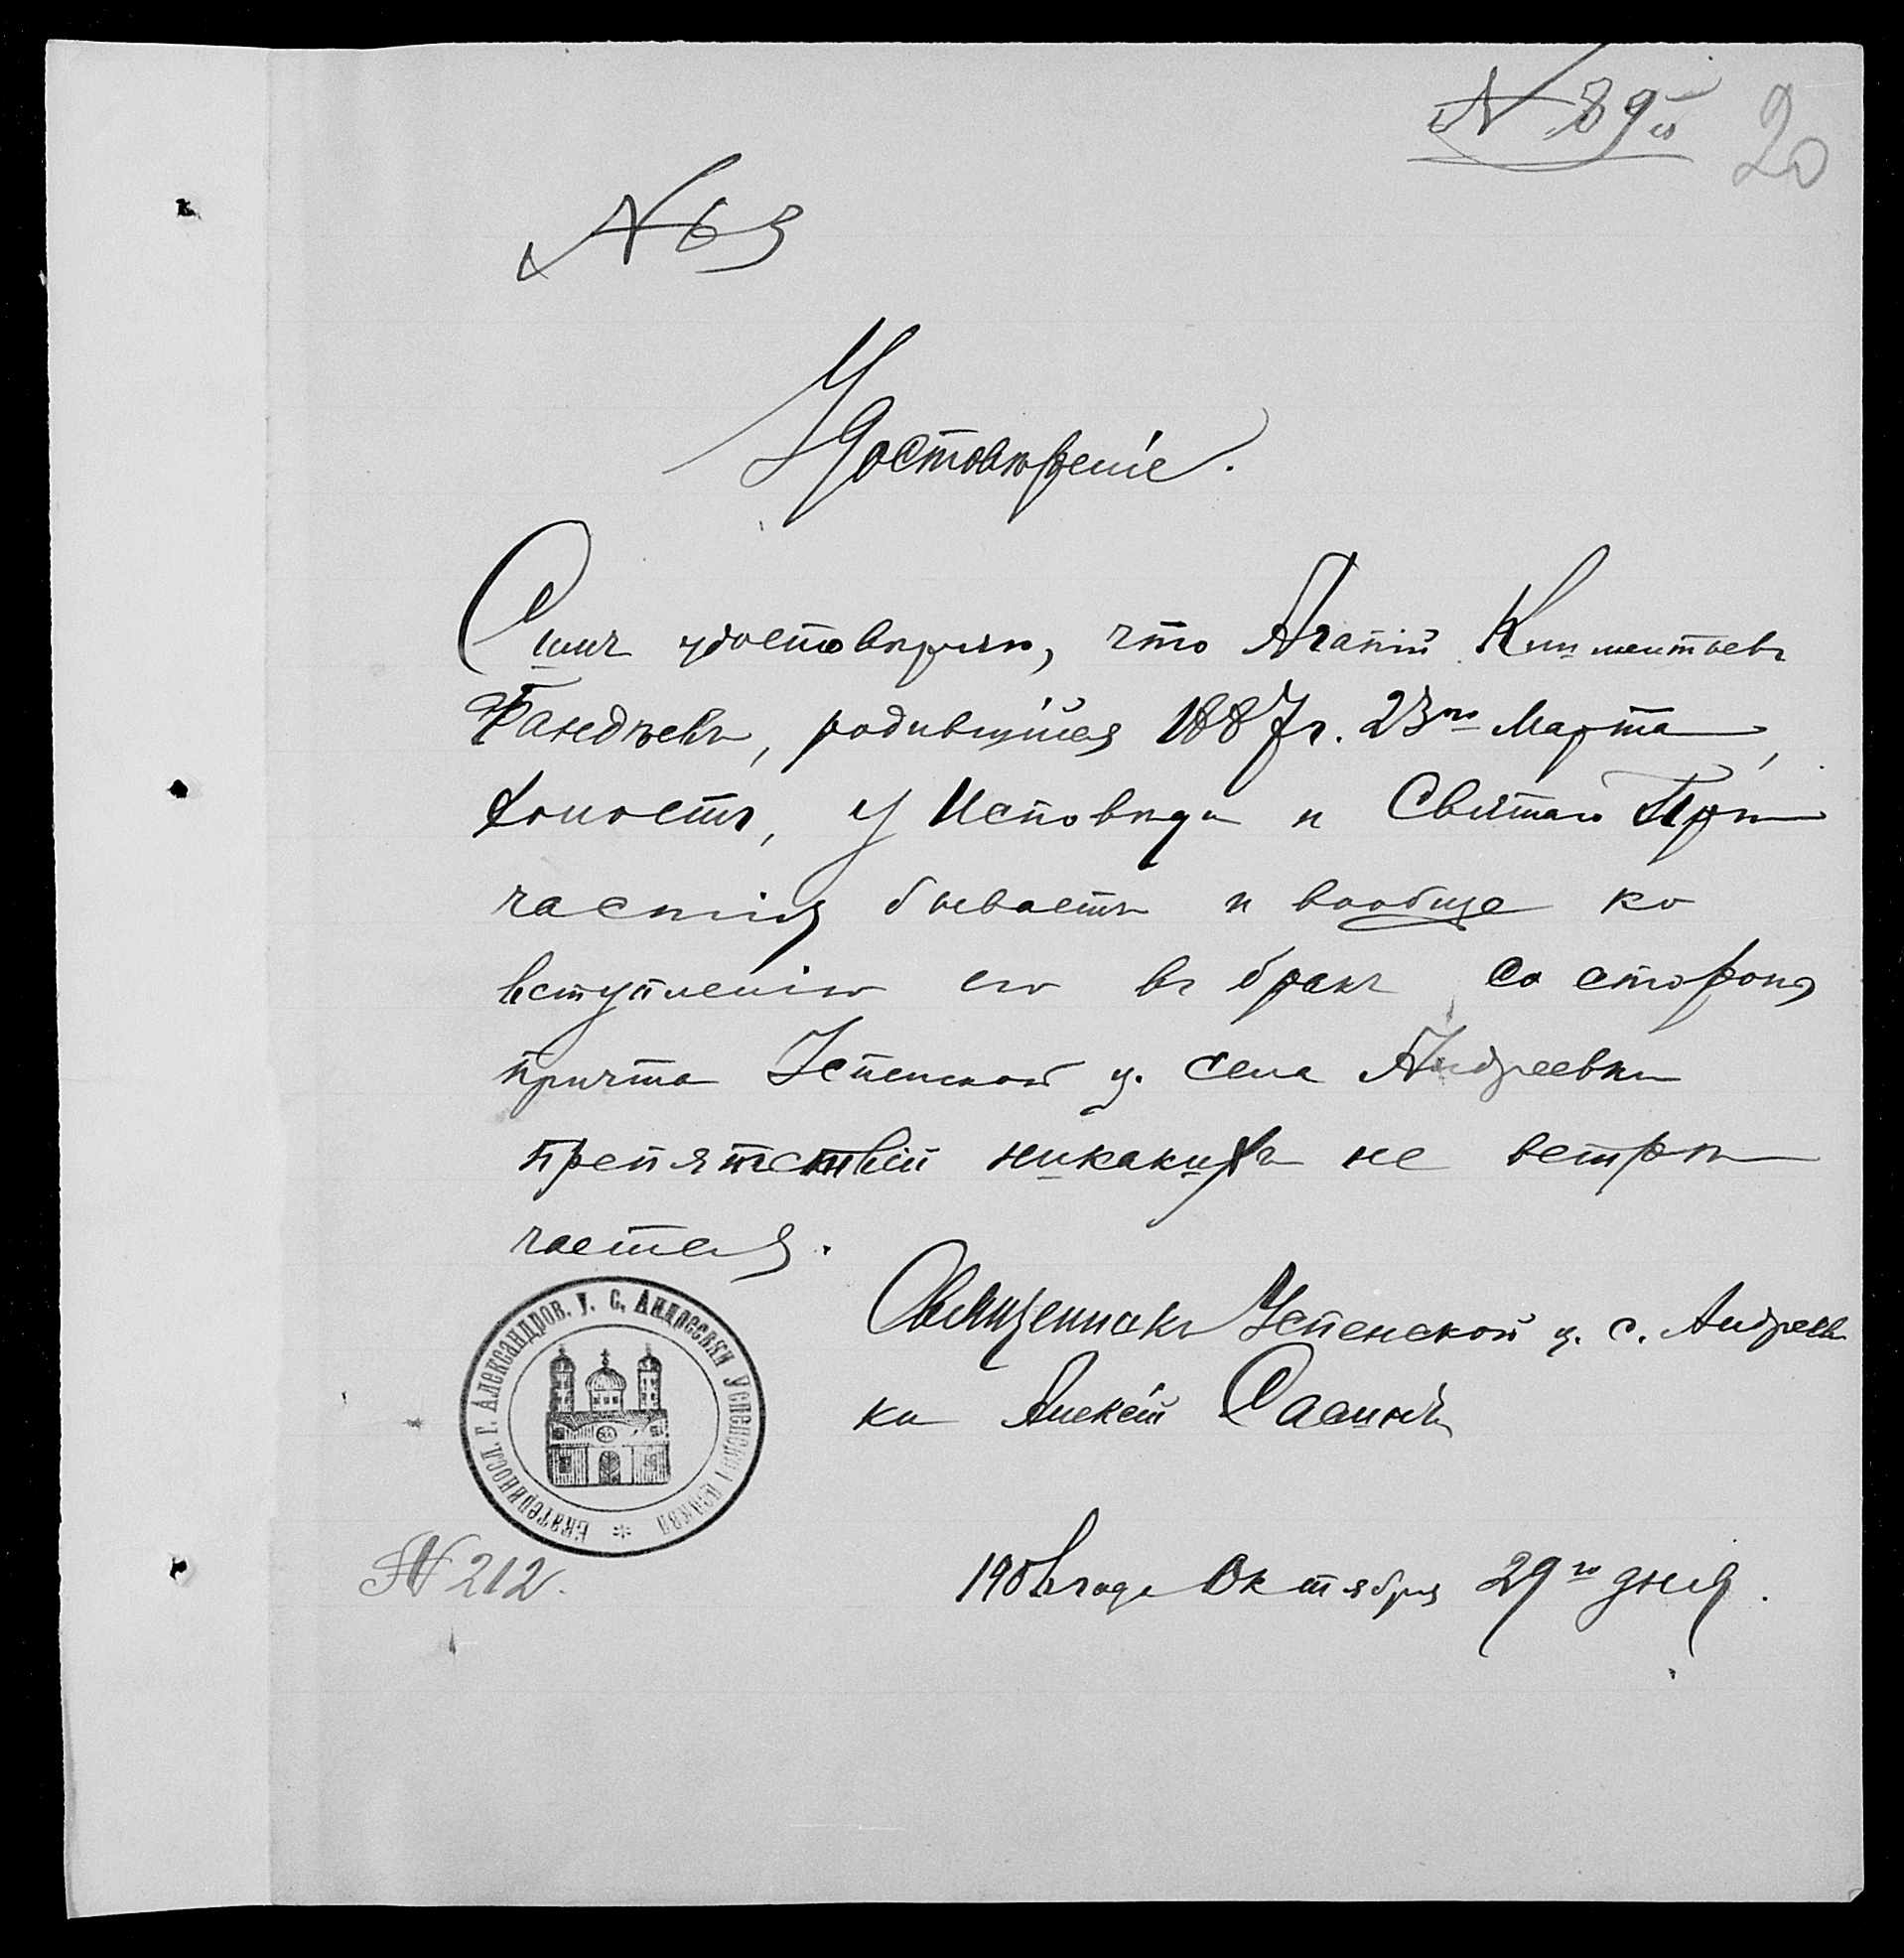 № 89й
20
№ 63
Удостовѣреніе.
Симъ удостовѣряю, что Агапій Климентьевъ
родившійся 1887 г. 23го Марта,
холостъ, у Исповѣди и Святаго При
частія бываетъ и вообще ко
вступленію его въ бракъ со стороны
причта Успенской ц. села Андреевки
препятствій никакихъ не встрѣ
чается.
Священникъ Успенской ц. с. Андреев
ки Алексѣй
Екатериносл. г. Александров. у. с. Андреевки Успенской церкви
№ 212.
года Октября 29го дня.